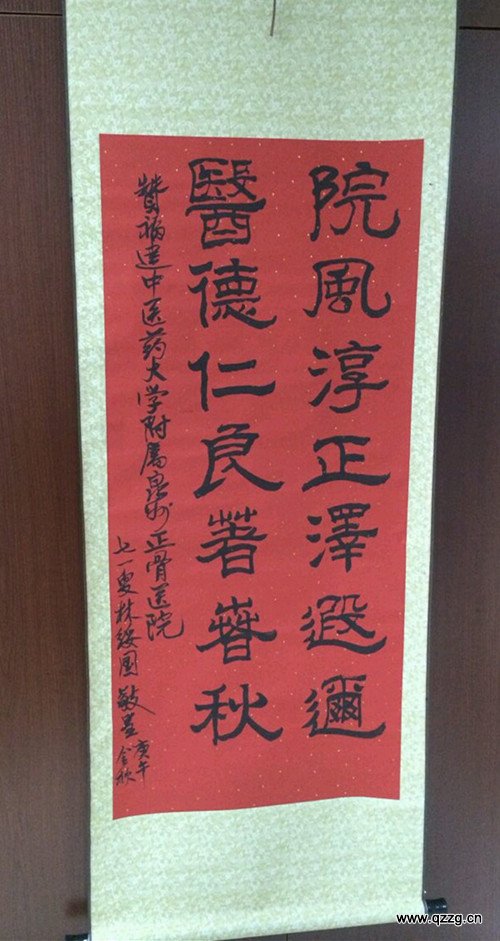 院風淳正澤遐邇
醫德仁良著春秋
贊福建中医药大学附属泉州正骨医院
七一叟林绥国敬书
庚午
金秋
www.qzzg.cn